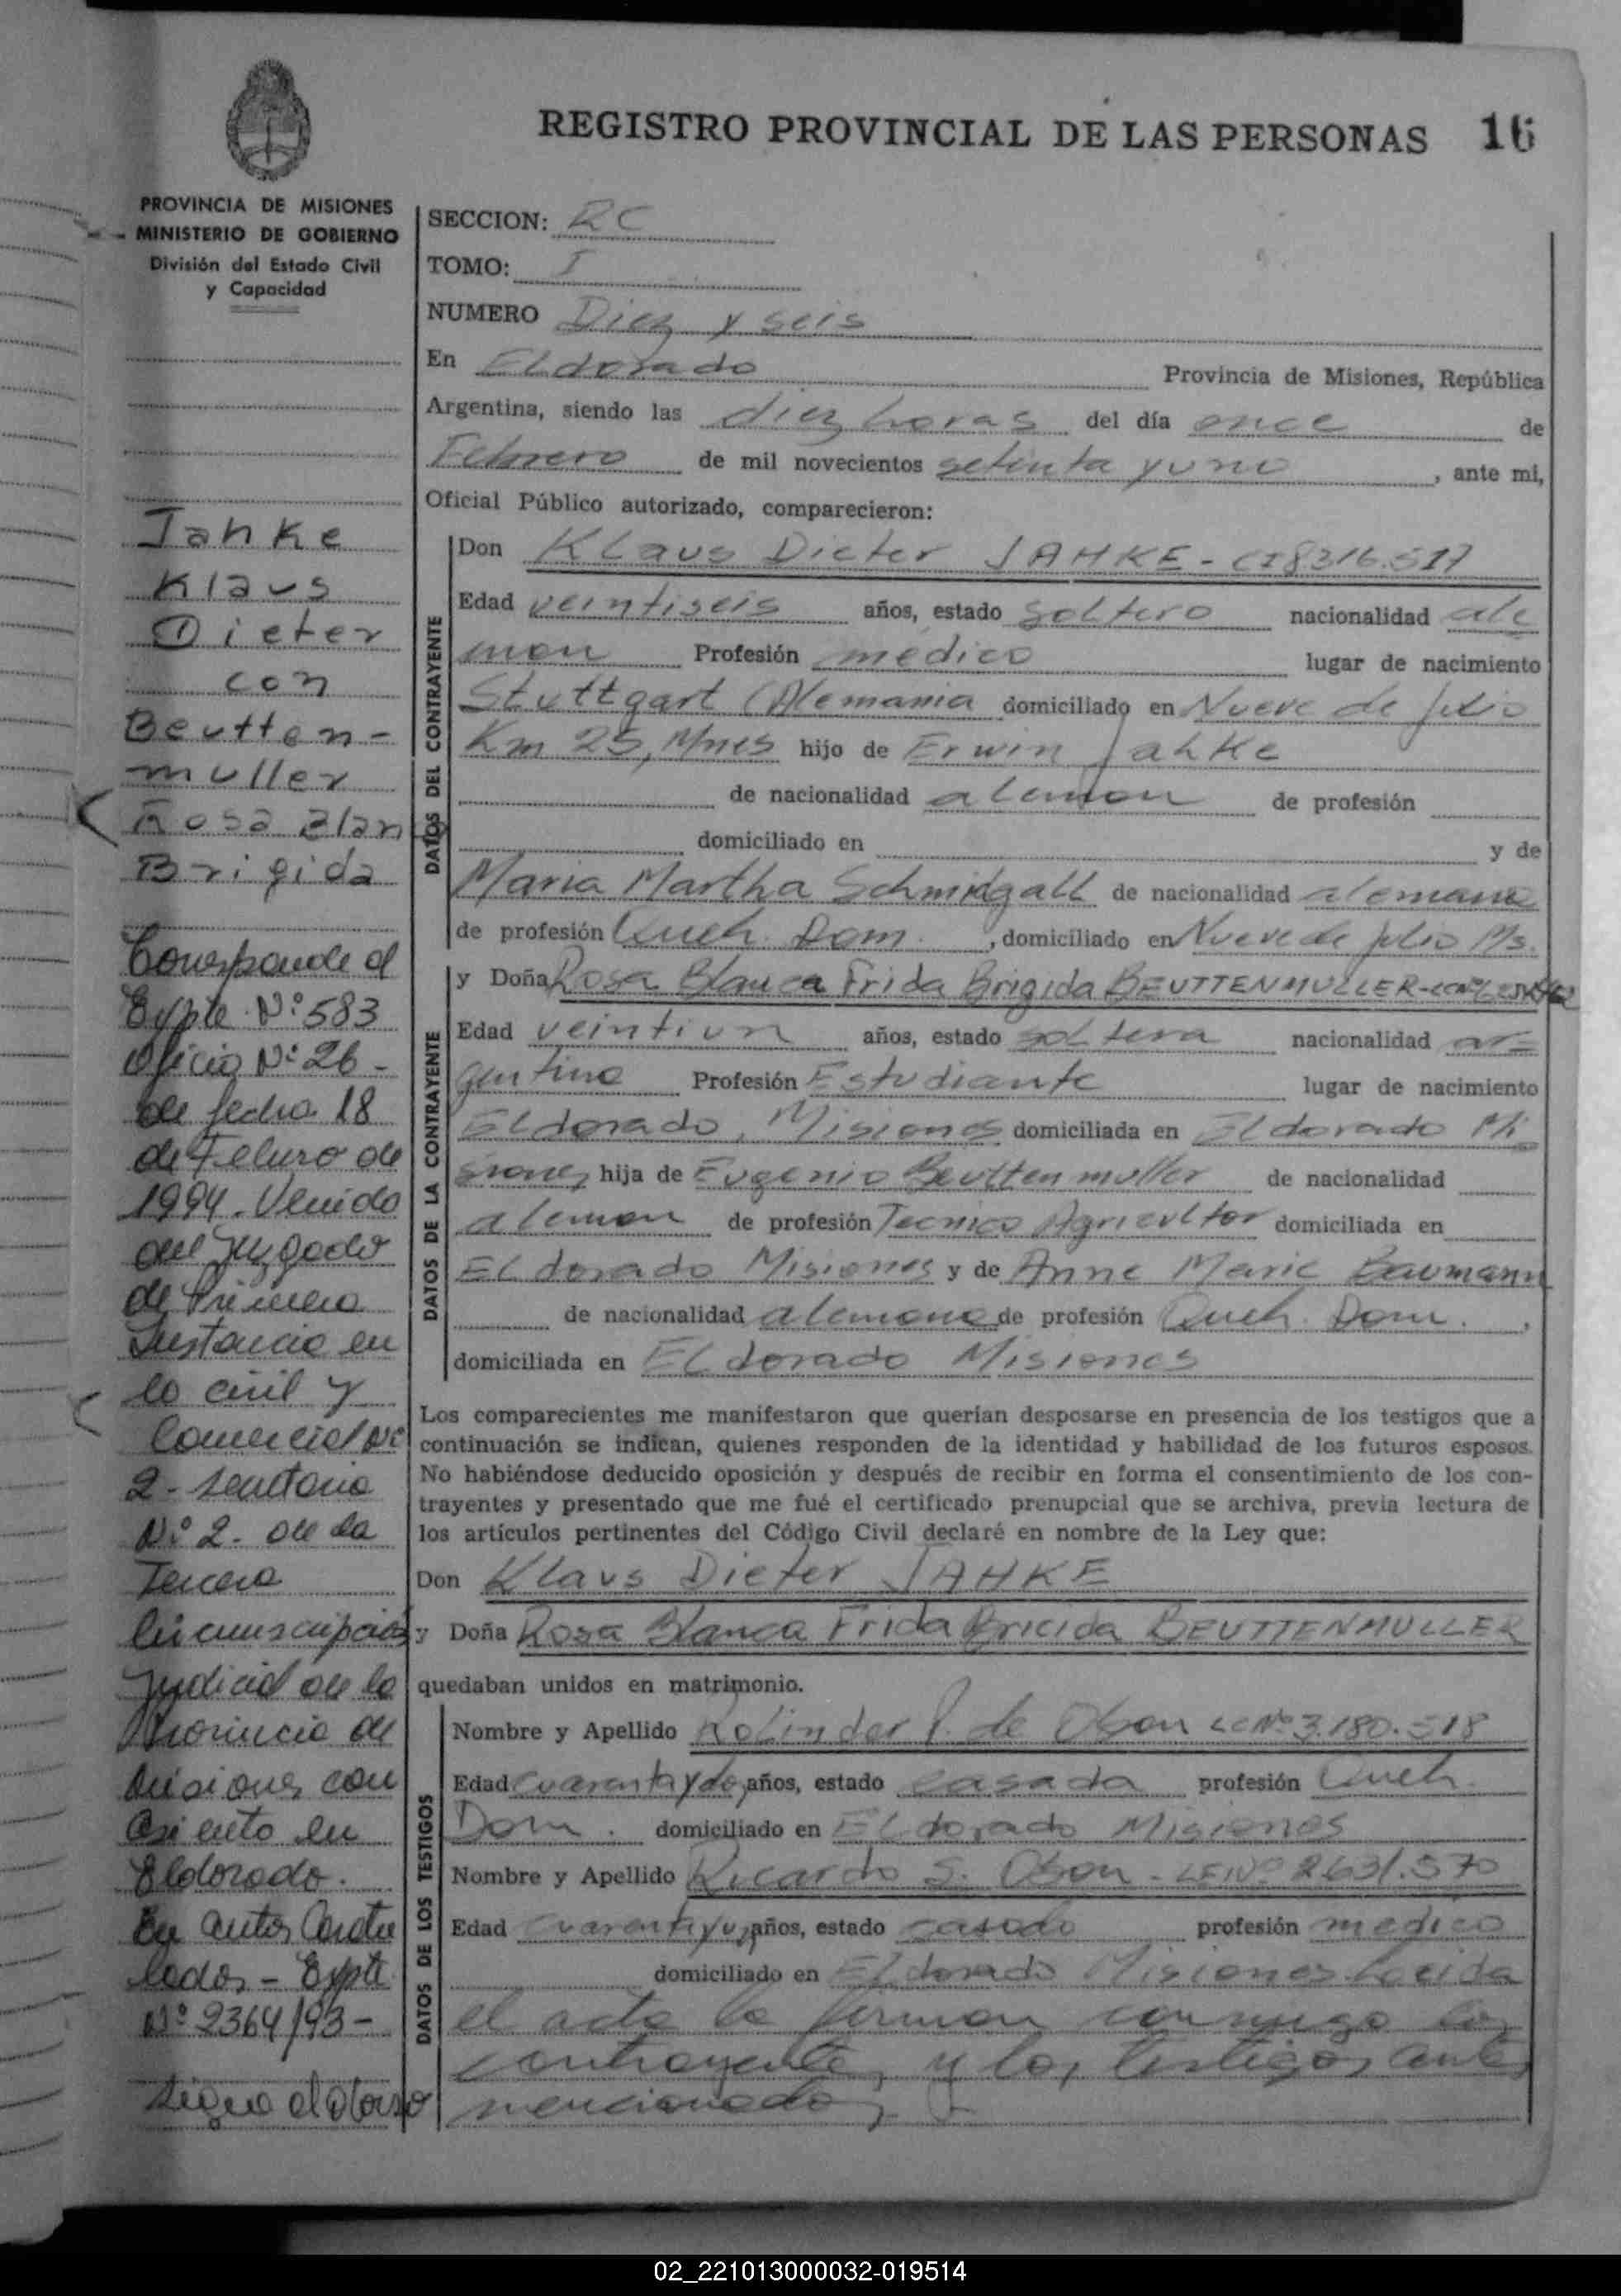 REGISTRO PROVINCIAL DE LAS PERSONAS 16
PROVINCIA DE MISIONES
MINISTERIO DE GOBIERNO
División del Estado Civil
y Capacidad
Jahke
Klaus
Dieter
con
Beutten-
muller
Rosa Blan
Brigida
Corresponde al
Expte. Nº 583
Oficio Nº 26-
de fecha 18
de Febrero de
1994. Venido
del Juzgado
de Primera
Instancia en
lo civil y
Comercial Nº
2- Secretaria
Nº 2. de la
Tercera
Circunscripción
Judicial de la
Provincia de
Misiones con
Asiento en
Eldorado.
En autos Caratu
lados - Expte.
Nº 2364/93-
Sigue al dorso
SECCION: RC
TOMO: I
NUMERO Diez y seis
En Eldorado Provincia de Misiones, República
Argentina, siendo las diez horas del día once de
Febrero de mil novecientos setenta y uno, ante mi,
Oficial Público autorizado, comparecieron:
DATOS DEL CONTRAYENTE
Don Klaus Dieter JAHKE - CI 8316.517
Edad veintiseis años, estado soltero nacionalidad ale
man Profesión médico lugar de nacimiento
Stuttgart (Alemania domiciliado en Nueve de Julio
Km 25, Mnes hijo de Erwin Jahke
de nacionalidad aleman de profesión
domiciliado en y de
Maria Martha Schmidgall de nacionalidad alemana
de profesión Queh. Dom. , domiciliado en Nueve de Julio Ms.
DATOS DE LA CONTRAYENTE
y Doña Rosa Blanca Frida Brigida BEUTTENMULLER
Edad veintiun años, estado soltera nacionalidad ar=
gentina Profesión Estudiante lugar de nacimiento
Eldorado, Misiones domiciliada en Eldorado Mi
siones hija de Eugenio Beuttenmuller de nacionalidad
aleman de profesión Tecnico Agricultor domiciliada en
Eldorado Misiones y de Anne Marie Baumann
de nacionalidad alemana de profesión Queh. Dom. ,
domiciliada en Eldorado Misiones
Los comparecientes me manifestaron que querían desposarse en presencia de los testigos que a
continuación se indican, quienes responden de la identidad y habilidad de los futuros esposos.
No habiéndose deducido oposición y después de recibir en forma el consentimiento de los con-
trayentes y presentado que me fué el certificado prenupcial que se archiva, previa lectura de
los artículos pertinentes del Código Civil declaré en nombre de la Ley que:
Don Klaus Dieter JAHKE
y Doña Rosa Blanca Frida Bricida BEUTTENMULLER
quedaban unidos en matrimonio.
DATOS DE LOS TESTIGOS
Nombre y Apellido de Olson LC Nº 3.180.518
Edad cuarenta y dos años, estado casada profesión Queh.
Dom. domiciliado en Eldorado Misiones
Nombre y Apellido Ricardo S. Olson - LE Nº 2.631.570
Edad cuarenta y años, estado casado profesión medico
domiciliado en Eldorado Misiones Leida
el acta la firman conmigo los
contrayentes y los testigos antes
mencionados
02_221013000032-019514